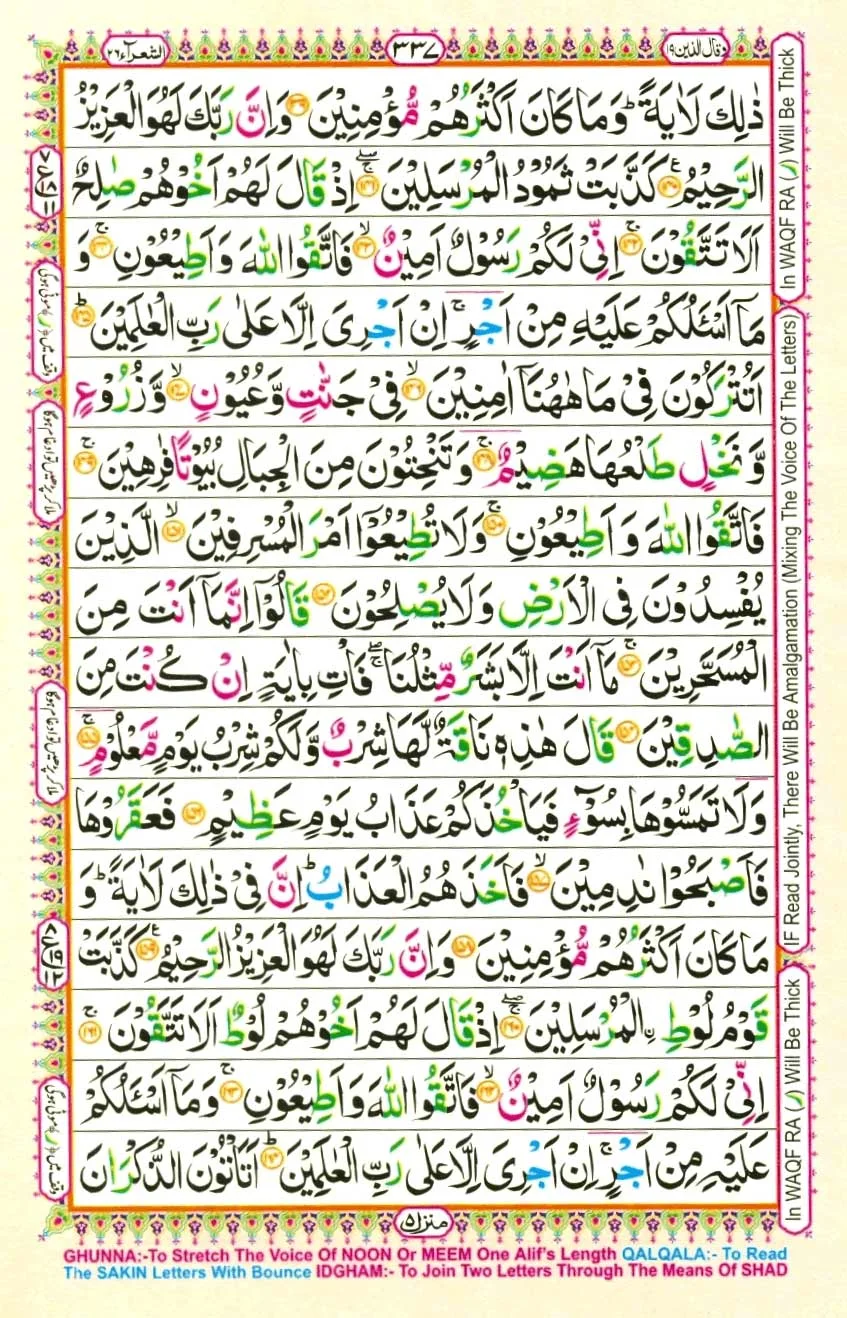 الشعرآء ٢٦
٣٣٧
وقال الذين ١٩
ذٰلِكَ لَاٰيَةً ؕ وَمَا كَانَ اَكْثَرُهُمْ مُّؤْمِنِيْنَ ﴿١٣٩﴾ وَاِنَّ رَبَّكَ لَهُوَ الْعَزِيْزُ
الرَّحِيْمُ ﴿١٤٠﴾ كَذَّبَتْ ثَمُوْدُ الْمُرْسَلِيْنَ ﴿١٤١﴾ اِذْ قَالَ لَهُمْ اَخُوْهُمْ صٰلِحٌ
اَلَا تَتَّقُوْنَ ﴿١٤٢﴾ اِنِّىْ لَكُمْ رَسُوْلٌ اَمِيْنٌ ﴿١٤٣﴾ فَاتَّقُوا اللّٰهَ وَاَطِيْعُوْنِ ﴿١٤٤﴾ وَ
مَاۤ اَسْـَٔلُكُمْ عَلَيْهِ مِنْ اَجْرٍ ۚ اِنْ اَجْرِىَ اِلَّا عَلٰى رَبِّ الْعٰلَمِيْنَ ﴿١٤٥﴾
اَتُتْرَكُوْنَ فِىْ مَا هٰهُنَاۤ اٰمِنِيْنَ ﴿١٤٦﴾ فِىْ جَنّٰتٍ وَّعُيُوْنٍ ﴿١٤٧﴾ وَّزُرُوْعٍ
وَّنَخْلٍ طَلْعُهَا هَضِيْمٌ ﴿١٤٨﴾ وَتَنْحِتُوْنَ مِنَ الْجِبَالِ بُيُوْتًا فٰرِهِيْنَ ﴿١٤٩﴾
فَاتَّقُوا اللّٰهَ وَاَطِيْعُوْنِ ﴿١٥٠﴾ وَلَا تُطِيْعُوْۤا اَمْرَ الْمُسْرِفِيْنَ ﴿١٥١﴾ الَّذِيْنَ
يُفْسِدُوْنَ فِى الْاَرْضِ وَلَا يُصْلِحُوْنَ ﴿١٥٢﴾ قَالُوْۤا اِنَّمَاۤ اَنْتَ مِنَ
الْمُسَحَّرِيْنَ ﴿١٥٣﴾ مَاۤ اَنْتَ اِلَّا بَشَرٌ مِّثْلُنَا ۖۚ فَاْتِ بِاٰيَةٍ اِنْ كُنْتَ مِنَ
الصّٰدِقِيْنَ ﴿١٥٤﴾ قَالَ هٰذِهٖ نَاقَةٌ لَّهَا شِرْبٌ وَّلَكُمْ شِرْبُ يَوْمٍ مَّعْلُوْمٍ ﴿١٥٥﴾
وَلَا تَمَسُّوْهَا بِسُوْٓءٍ فَيَاْخُذَكُمْ عَذَابُ يَوْمٍ عَظِيْمٍ ﴿١٥٦﴾ فَعَقَرُوْهَا
فَاَصْبَحُوْا نٰدِمِيْنَ ﴿١٥٧﴾ فَاَخَذَهُمُ الْعَذَابُ ؕ اِنَّ فِىْ ذٰلِكَ لَاٰيَةً ؕ وَ
مَا كَانَ اَكْثَرُهُمْ مُّؤْمِنِيْنَ ﴿١٥٨﴾ وَاِنَّ رَبَّكَ لَهُوَ الْعَزِيْزُ الرَّحِيْمُ ﴿١٥٩﴾ كَذَّبَتْ
قَوْمُ لُوْطِ ِۨالْمُرْسَلِيْنَ ﴿١٦٠﴾ اِذْ قَالَ لَهُمْ اَخُوْهُمْ لُوْطٌ اَلَا تَتَّقُوْنَ ﴿١٦١﴾
اِنِّىْ لَكُمْ رَسُوْلٌ اَمِيْنٌ ﴿١٦٢﴾ فَاتَّقُوا اللّٰهَ وَاَطِيْعُوْنِ ﴿١٦٣﴾ وَمَاۤ اَسْـَٔلُكُمْ
عَلَيْهِ مِنْ اَجْرٍ ۚ اِنْ اَجْرِىَ اِلَّا عَلٰى رَبِّ الْعٰلَمِيْنَ ﴿١٦٤﴾ اَتَاْتُوْنَ الذُّكْرَانَ
منزل ٥
In WAQF RA (ر) Will Be Thick
IF Read Jointly, There Will Be Amalgamation (Mixing The Voice Of The Letters)
In WAQF RA (ر) Will Be Thick
وقف میں ﴿ر﴾ موٹی ہوگی
ملا کر پڑھیں تو ادغام ہوگا
ملا کر پڑھیں تو ادغام ہوگا
وقف میں ﴿ر﴾ موٹی ہوگی
GHUNNA:-To Stretch The Voice Of NOON Or MEEM One Alif's Length QALQALA:- To Read
The SAKIN Letters With Bounce IDGHAM:- To Join Two Letters Through The Means Of SHAD